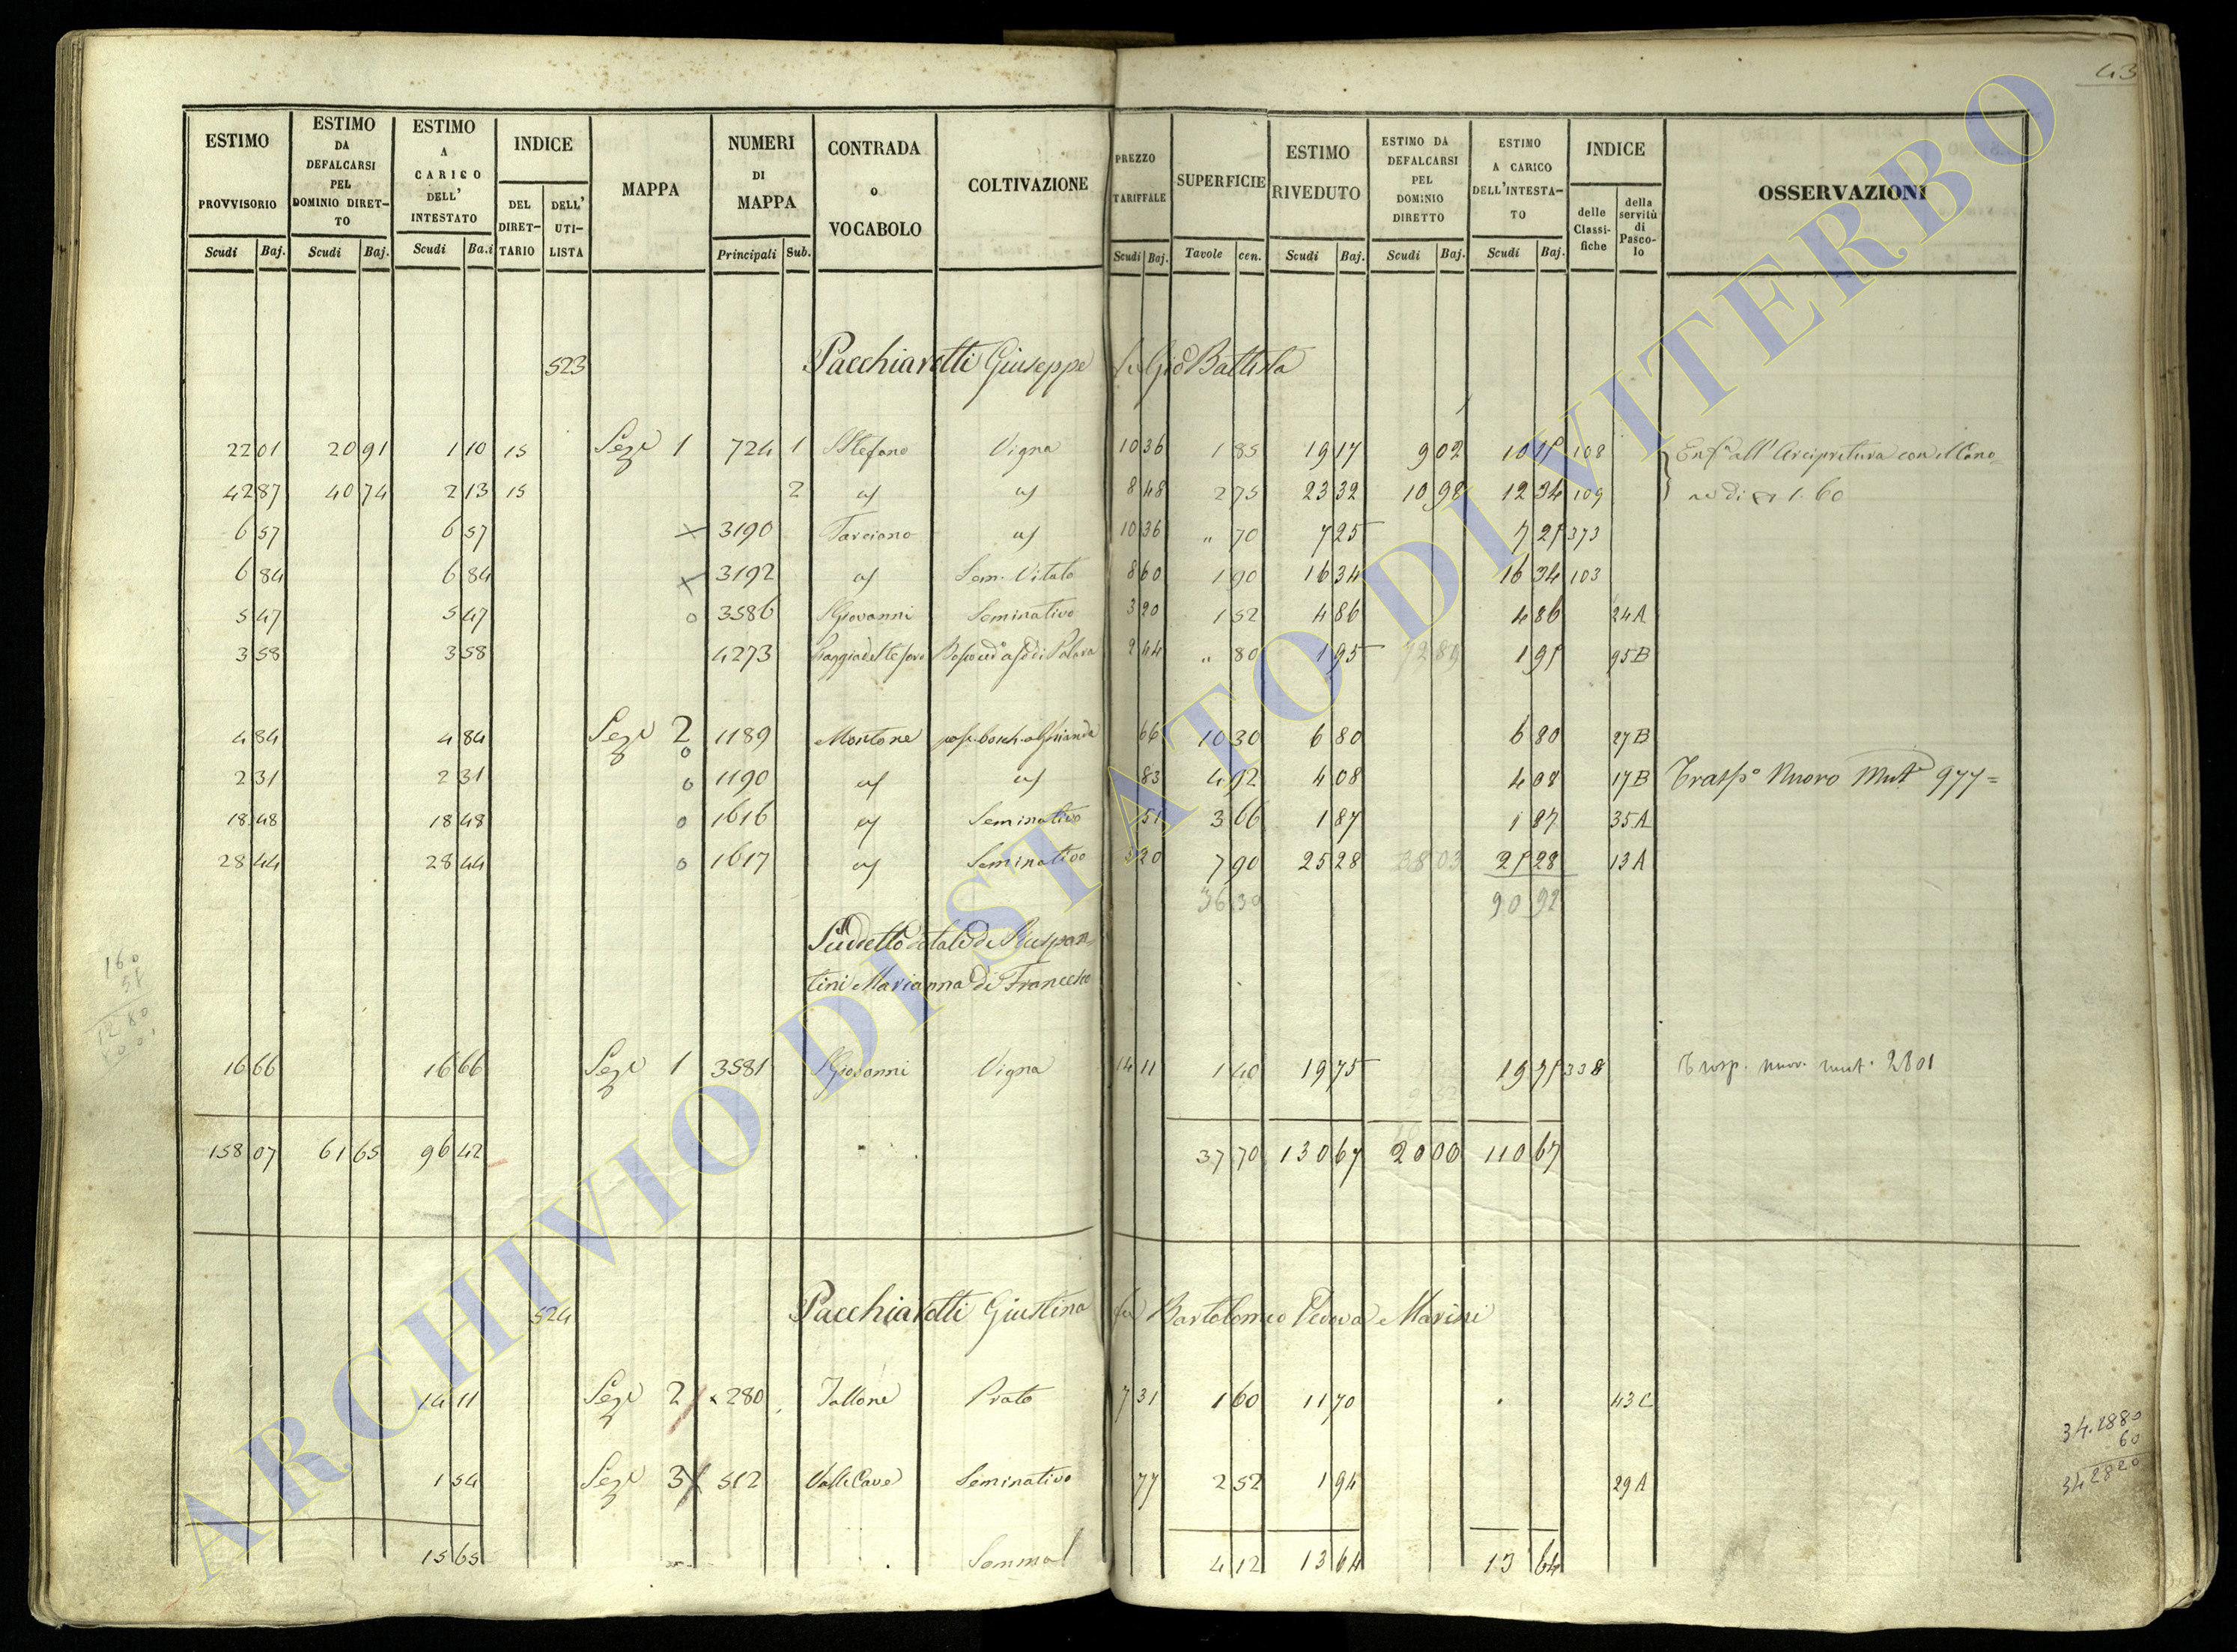 43
ESTIMO PROVVISORIO Scudi Baj.
ESTIMO DA DEFALCARSI PEL DOMINIO DIRET-TO Scudi Baj.
ESTIMO A CARICO DELL' INTESTATO Scudi Ba.i
INDICE DEL DIRET-TARIO DELL' UTI-LISTA
MAPPA
NUMERI DI MAPPA Principali Sub.
CONTRADA o VOCABOLO
COLTIVAZIONE
PREZZO TARIFFALE Scudi Baj.
SUPERFICIE Tavole cen.
ESTIMO RIVEDUTO Scudi Baj.
ESTIMO DA DEFALCARSI PEL DOMINIO DIRETTO Scudi Baj.
ESTIMO A CARICO DELL'INTESTA-TO Scudi Baj.
INDICE delle Classi-fiche della servitù di Pasco-lo
OSSERVAZIONI
523 Pacchiarotti Giuseppe fu Gio Battista
22 01 20 91 1 10 15 Sezе 1 724 1 S Stefano Vigna 10 36 1 85 19 17 9 02 10 15 108 all' Arcipretura con
42 87 40 74 2 13 15 2 8 48 2 75 23 32 10 98 12 34 109 di 1.60
6 57 6 57 3190 10 36 " 70 7 25 7 25 373
6 84 6 84 3192 Sem. Vitato 8 60 1 90 16 34 16 34 103
5 47 5 47 3586 S Giovanni Seminativo 3 20 1 52 4 86 4 86 24A
3 58 3 58 4273 2 44 " 80 1 95 1 95 95B
4 84 4 84 2 1189 Montone 66 10 30 6 80 6 80 27B
2 31 2 31 1190 83 4 92 4 08 4 08 17B Trasp° Nuovo Mut° 977=
18 48 18 48 1616 Seminativo 51 3 66 1 87 1 87 35A
28 44 28 44 1617 Seminativo 3 20 7 90 25 28 25 28 13A
36 30 90 92
Suddetto
tini Marianna di Francesco
16 66 16 66 1 3581 S Giovanni Vigna 14 11 1 40 19 75 19 75 338 2801
158 07 61 65 96 42 37 70 130 67 20 00 110 67
524 Pacchiarotti Giustina fu Bartolomeo Vedova Marini
14 11 2 280 Prato 7 31 1 60 11 70 43C
1 54 3 512 Valle Cave Seminativo 77 2 52 1 94 29A
15 65 Somma 4 12 13 64 13 64
34.2880
60
34 2820
ARCHIVIO DI STATO DI VITERBO